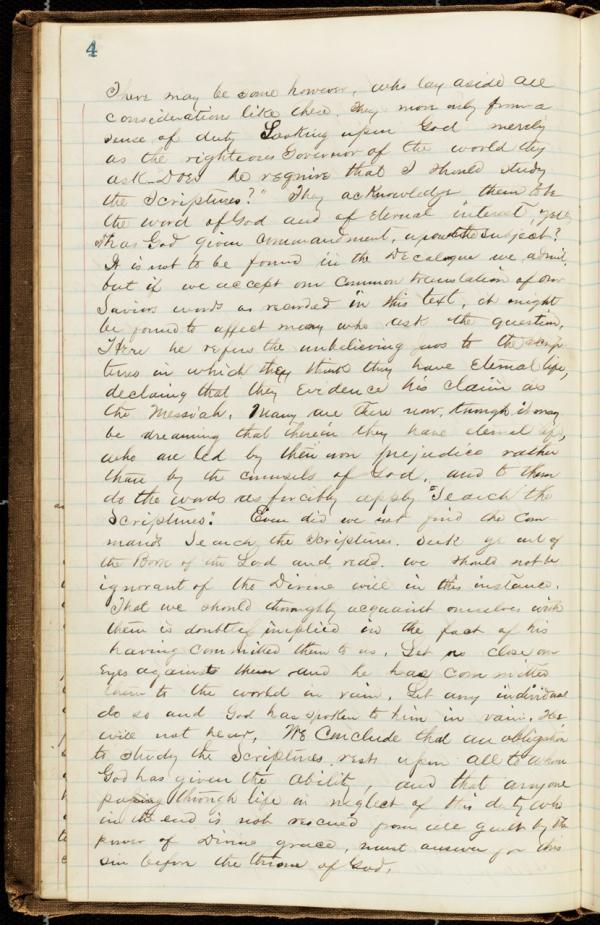 4
There may be some however, who lay aside all
considerations like these. They move only from a
sense of duty Looking upon God merely
as the righteous Governor of the world they
ask—Does he require that I should study
the Scriptures?" They acknowledge them to be
the word of God and of Eternal interest, yet
Has God given commandment, upon the subject?
It is not to be found in the Decalogue we admit,
but if we accept our common translation of our
Saviors words as recorded in this text, it might
be found to affect many who ask the question.
Here he refers the unbelieving Jews to the scrip
tures in which they think they have Eternal life,
declaring that they Evidence his claim as
the Messiah. Many are there now, though it may
be dreaming that therein they have eternal life,
who are led by their own prejudice rather
than by the counsels of God, and to them
do the words as forcibly apply "Search the
Scriptures". Even did we not find the com
mands Search the Scriptures. Seek ye out of
the Book of the Lord and read. we should not be
ignorant of the Divine will in this instance.
That we should thoroughly acquaint ourselves with
them is doubtless implied in the fact of his
having committed them to us. Let us close our
Eyes against them and he has committed
them to the world in vain. Let any individual
do so and God has spoken to him in vain. He
will not hear. We conclude that an obligation
to study the Scriptures rests upon all to whom
God has given the ability, and that anyone
passing through life in neglect of this duty who
in the end is not rescued from all guilt by the
power of Divine grace, must answer for this
sin before the throne of God.